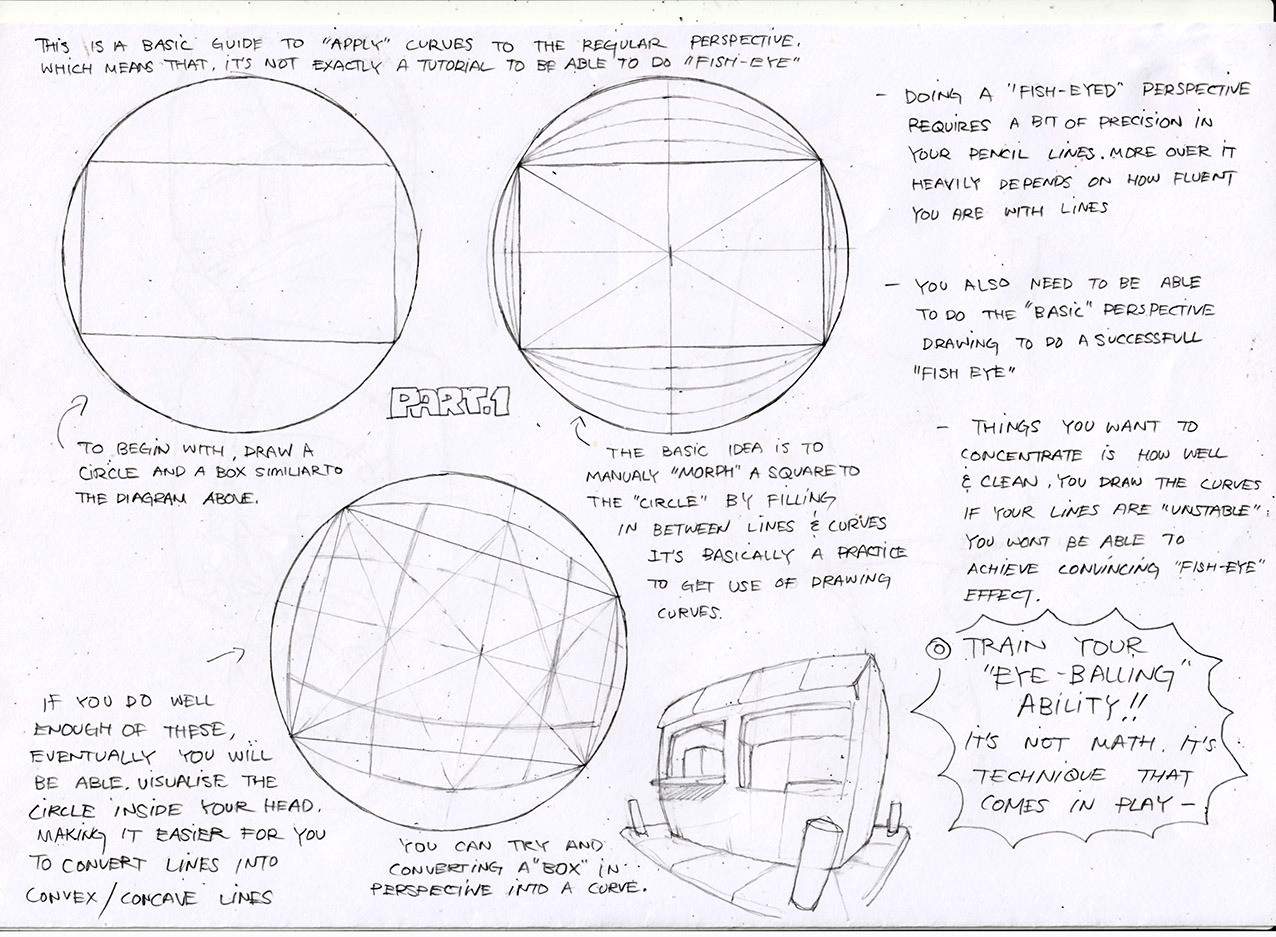 THIS IS A BASIC GUIDE TO "APPLY" CURVES TO THE REGULAR PERSPECTIVE.
WHICH MEANS THAT, IT'S NOT EXACTLY A TUTORIAL TO BE ABLE TO DO "FISH-EYE"
- DOING A "FISH-EYED" PERSPECTIVE
REQUIRES A BIT OF PRECISION IN
YOUR PENCIL LINES. MORE OVER IT
HEAVILY DEPENDS ON HOW FLUENT
YOU ARE WITH LINES
- YOU ALSO NEED TO BE ABLE
TO DO THE "BASIC" PERSPECTIVE
DRAWING TO DO A SUCCESSFULL
"FISH EYE"
PART.1
TO BEGIN WITH, DRAW A
CIRCLE AND A BOX SIMILIAR TO
THE DIAGRAM ABOVE.
THE BASIC IDEA IS TO
MANUALY "MORPH" A SQUARE TO
THE "CIRCLE" BY FILLING
IN BETWEEN LINES & CURVES
IT'S BASICALLY A PRACTICE
TO GET USE OF DRAWING
CURVES.
- THINGS YOU WANT TO
CONCENTRATE IS HOW WELL
& CLEAN, YOU DRAW THE CURVES
IF YOUR LINES ARE "UNSTABLE"
YOU WONT BE ABLE TO
ACHIEVE CONVINCING "FISH-EYE"
EFFECT.
IF YOU DO WELL
ENOUGH OF THESE,
EVENTUALLY YOU WILL
BE ABLE. VISUALISE THE
CIRCLE INSIDE YOUR HEAD.
MAKING IT EASIER FOR YOU
TO CONVERT LINES INTO
CONVEX/CONCAVE LINES
YOU CAN TRY AND
CONVERTING A "BOX" IN
PERSPECTIVE INTO A CURVE.
TRAIN YOUR
"EYE-BALLING"
ABILITY!!
IT'S NOT MATH. IT'S
TECHNIQUE THAT
COMES IN PLAY -